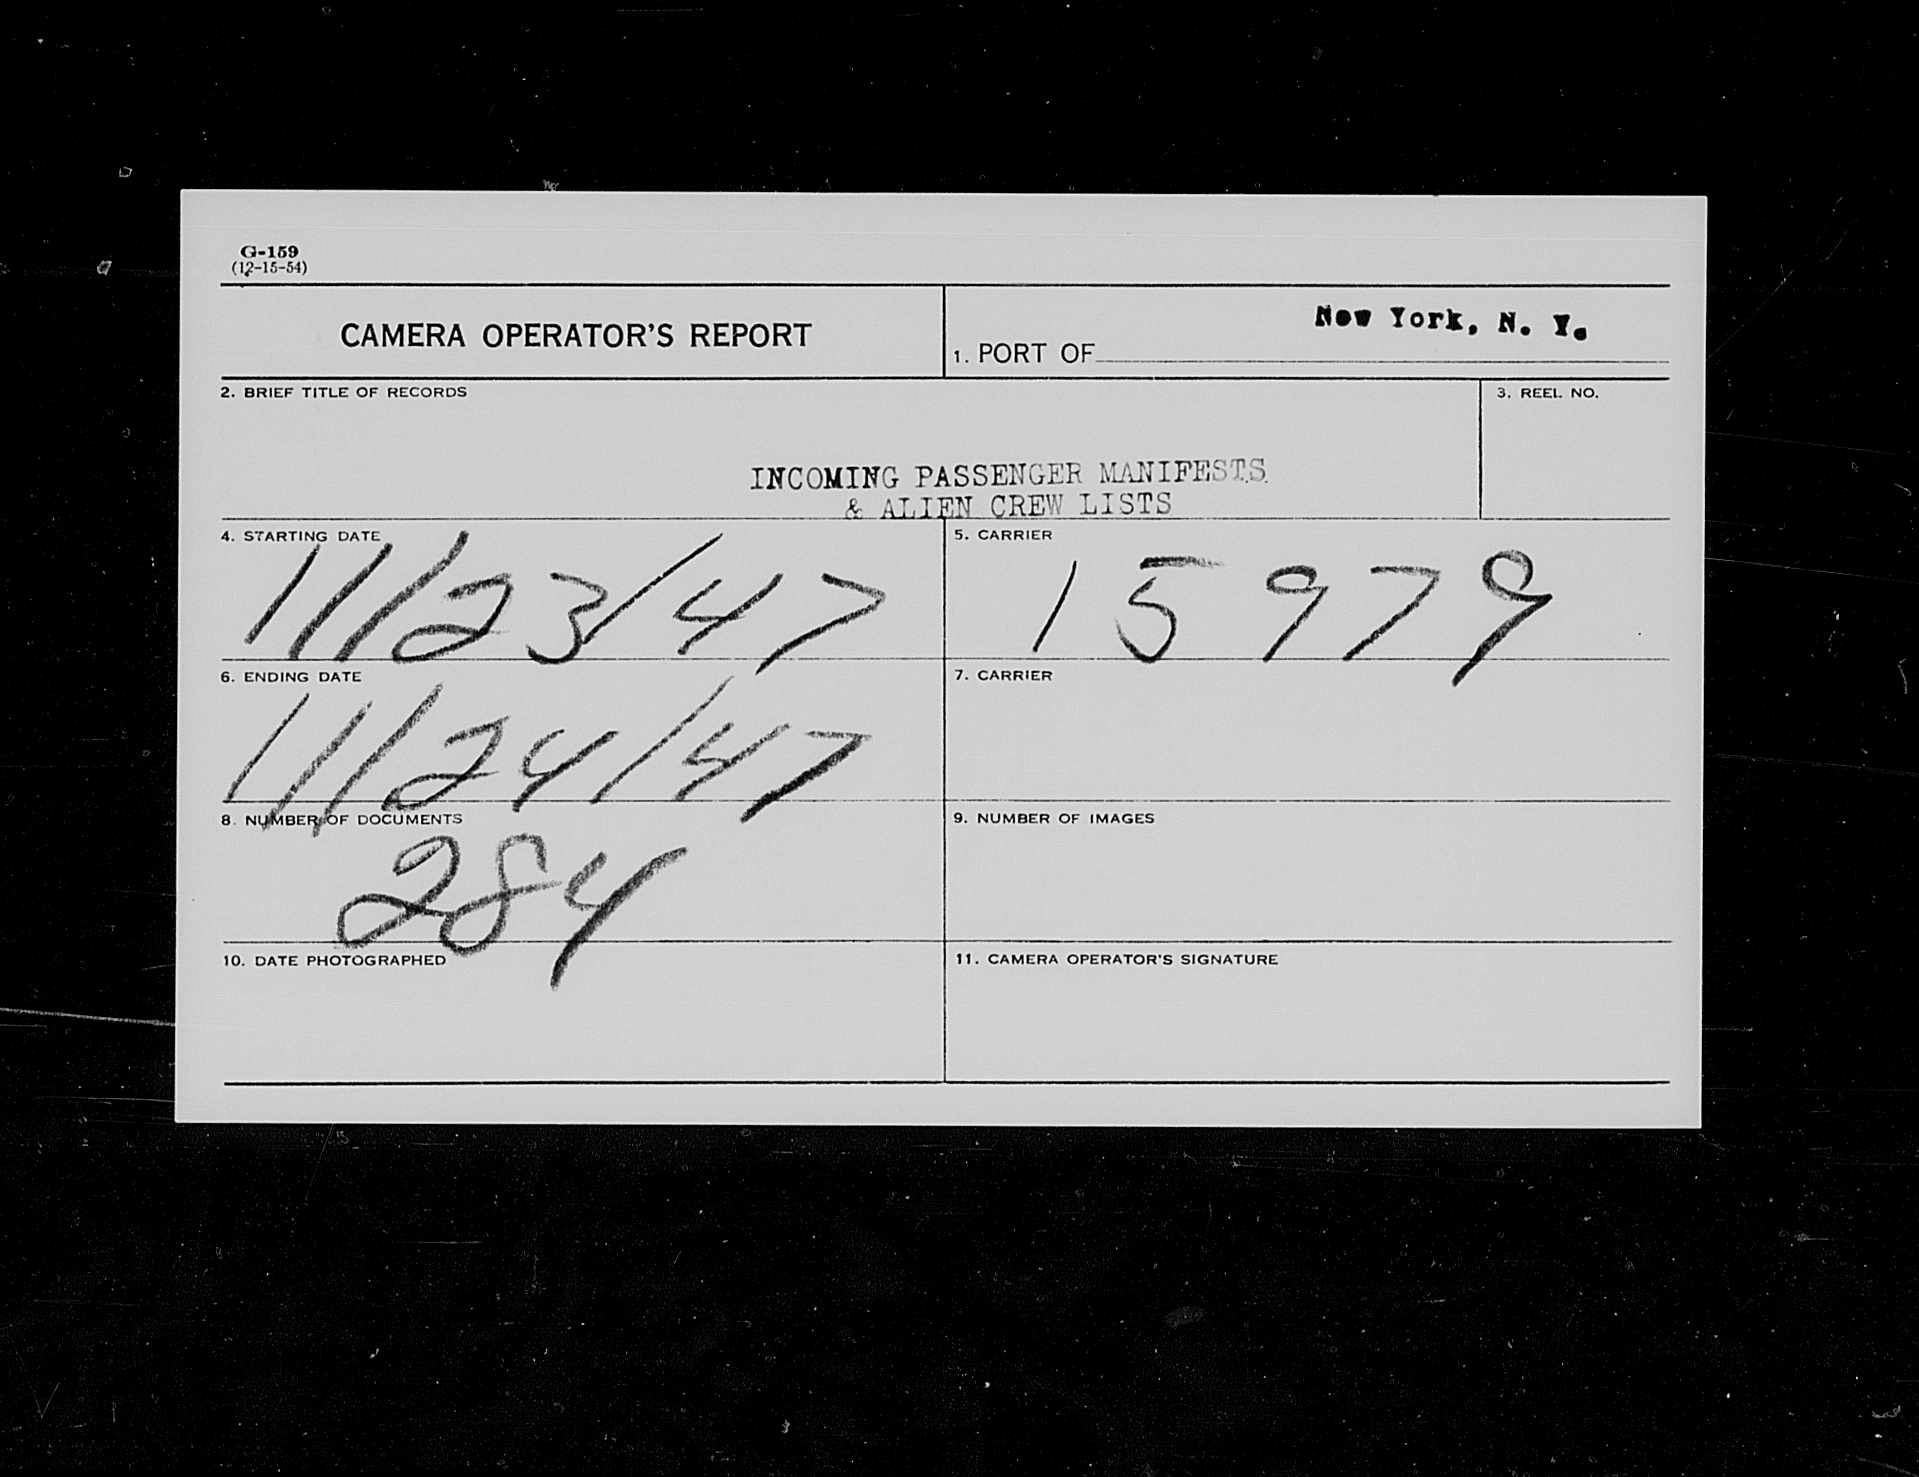 G-159
(12-15-54)
CAMERA OPERATOR'S REPORT
1. PORT OF New York, N. Y.
2. BRIEF TITLE OF RECORDS
3. REEL NO.
INCOMING PASSENGER MANIFESTS
& ALIEN CREW LISTS
4. STARTING DATE
11/23/47
5. CARRIER
15979
6. ENDING DATE
11/24/47
7. CARRIER
8. NUMBER OF DOCUMENTS
284
9. NUMBER OF IMAGES
10. DATE PHOTOGRAPHED
11. CAMERA OPERATOR'S SIGNATURE